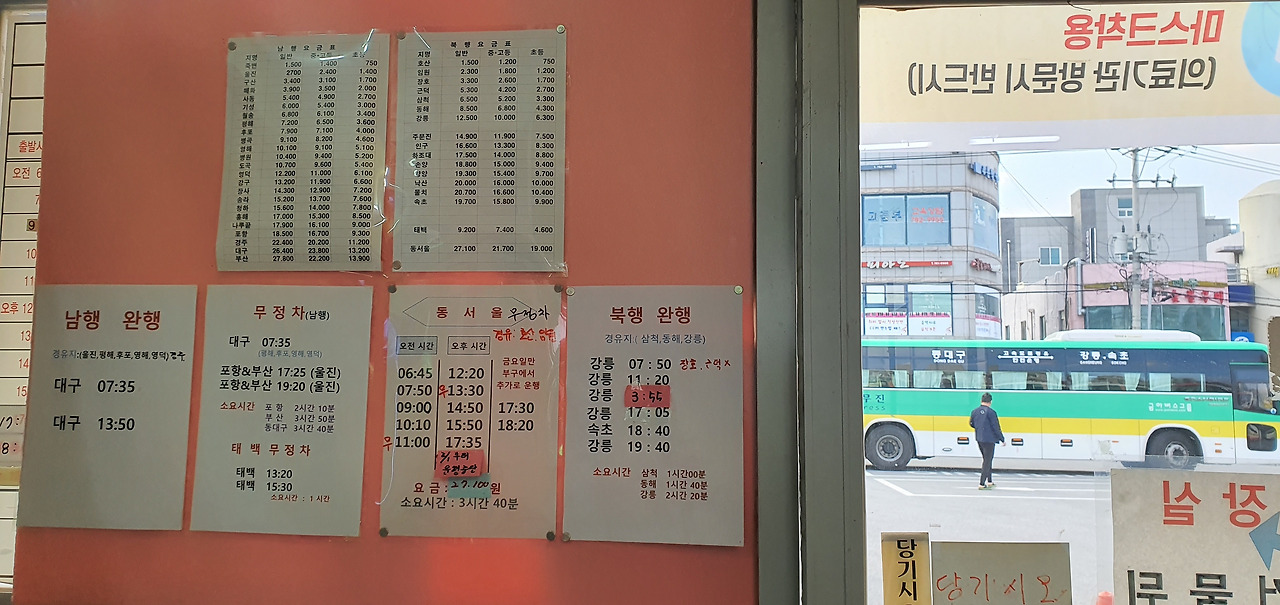 남 행 요 금 표
지명 일반 중·고등 초등
죽변 1,500 1,400 750
울진 2700 2,400 1,400
구산 3,400 3,100 1,700
매화 3,900 3,500 2,000
사동 5,400 4,900 2,700
기성 6,000 5,400 3,000
월송 6,800 6,100 3,400
평해 7,200 6,500 3,600
후포 7,900 7,100 4,000
병곡 9,100 8,200 4,600
영해 10,100 9,100 5,100
병원 10,400 9,400 5,200
도곡 10,700 9,600 5,400
영덕 12,200 11,000 6,100
강구 13,200 11,900 6,600
장사 14,300 12,900 7,200
송라 15,200 13,700 7,600
청하 15,600 14,000 7,800
흥해 17,000 15,300 8,500
나루끝 17,900 16,100 9,000
포항 18,500 16,700 9,300
경주 22,400 20,200 11,200
대구 26,400 23,800 13,200
부산 27,800 22,200 13,900
북 행 요 금 표
지명 일반 중·고등 초등
호산 1,500 1,200 750
임원 2,300 1,800 1,200
장호 3,300 2,600 1,700
근덕 5,300 4,200 2,700
삼척 6,500 5,200 3,300
동해 8,500 6,800 4,300
강릉 12,500 10,000 6,300
주문진 14,900 11,900 7,500
인구 16,600 13,300 8,300
하조대 17,500 14,000 8,800
18,800 15,000 9,400
양양 19,300 15,400 9,700
낙산 20,000 16,000 10,000
물치 20,700 16,600 10,400
속초 19,700 15,800 9,900
태백 9,200 7,400 4,600
동서울 27,100 21,700 19,000
남행 완행
경유지:(울진,평해,후포,영해,영덕)
대구 07:35
대구 13:50
무정차(남행)
대구 07:35
(평해,후포,영해,영덕)
포항&부산 17:25 (울진)
포항&부산 19:20 (울진)
소요시간 : 포항 2시간 10분
부산 3시간 50분
동대구 3시간 40분
태백 무정차
태백 13:20
태백 15:30
소요시간 : 1 시간
동 서 울 무정차
오전 시간 오후 시간
06:45 12:20
07:50 우13:30
09:00 14:55 17:30
10:10 15:50 18:20
우11:00 17:35
금요일만
부구에서
추가로 운행
요 금 : 27,100원
소요시간 : 3시간 40분
북행 완행
경유지 : ( 삼척,동해,강릉)
강릉 07 : 50 장호, 근덕X
강릉 11 : 20
강릉 3:55
강릉 17 : 05
속초 18 : 40
강릉 19 : 40
소요시간 : 삼척 1시간00분
동해 1시간 40분
강릉 2시간 20분
출발시
오전 6
오후 12
마스크착용
(의료기관 방문시 반드시)
동대구
강릉.속초
당기시
당기시오
장실
건물뒤